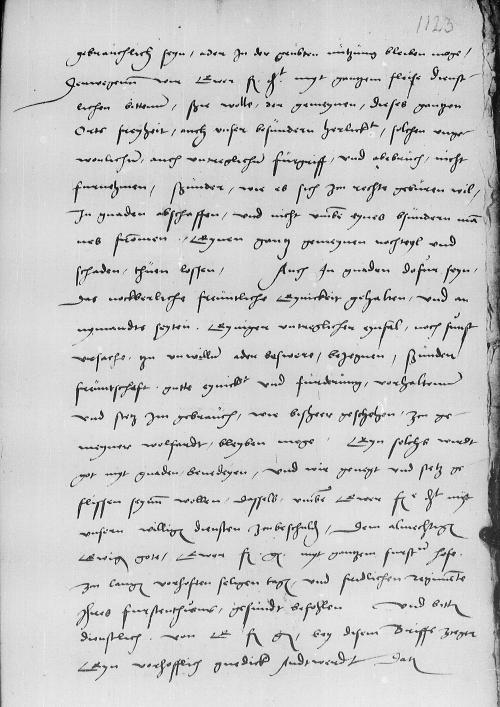 1123
gebrauchlich seyn, ader in der geubten nutzung bleiben moge,
Derwegenn wir Ewer f. g. myt gantzem fleise dienst-
lichen bittenn, Sye wolle, der gemeynen, dieses gantzen
Orts freyheit, auch unser besundern herlickt, solchen unge-
wonlichen, auch untreglichen furgriff, und abebruch, nicht
furnehmen, Sunder, wie es sich im rechte geburen wil,
In gnaden abschaffen, und nicht umbe eynes bsundern man
nes fromen, Eynen gantz gemeynen nochteyl und
schaden, thuen lossen, Auch in gnaden dofur seyn,
Das nockberliche freuntliche Eynickeit gehalten, und an
nymandts seyten, Eyniger untreglicher eynfal, noch sunst
ursache, zu unwillen ader beswere, begegnen, Sunder
freuntschaft, gutte eynickt und furderung, vorhaltenn
und stetz im gebrauch, wie bisheer geschehen, zu ge
meyner wolfardt, bleyben moge, Eyn solchs wurdt
got myt gnaden benedeyen, und wir geneygt und stetz ge
flissen seynn wollen, dasselb, umbe Ewer f. g. mit
unsern willigen diensten zubeschulden, Dem almechtigen
Ewigen gote, Ewer f. g. myt gantzem furstn hofe
zu langen vorhoften seligen tagen und fridlichen regimente
Ihres furstenthums, gesundt befohlen Und bitten
dienstlich, von E f g, bey disem Briffs zeiger
Eyn vorhofflich gnedick Andtwordt Datum